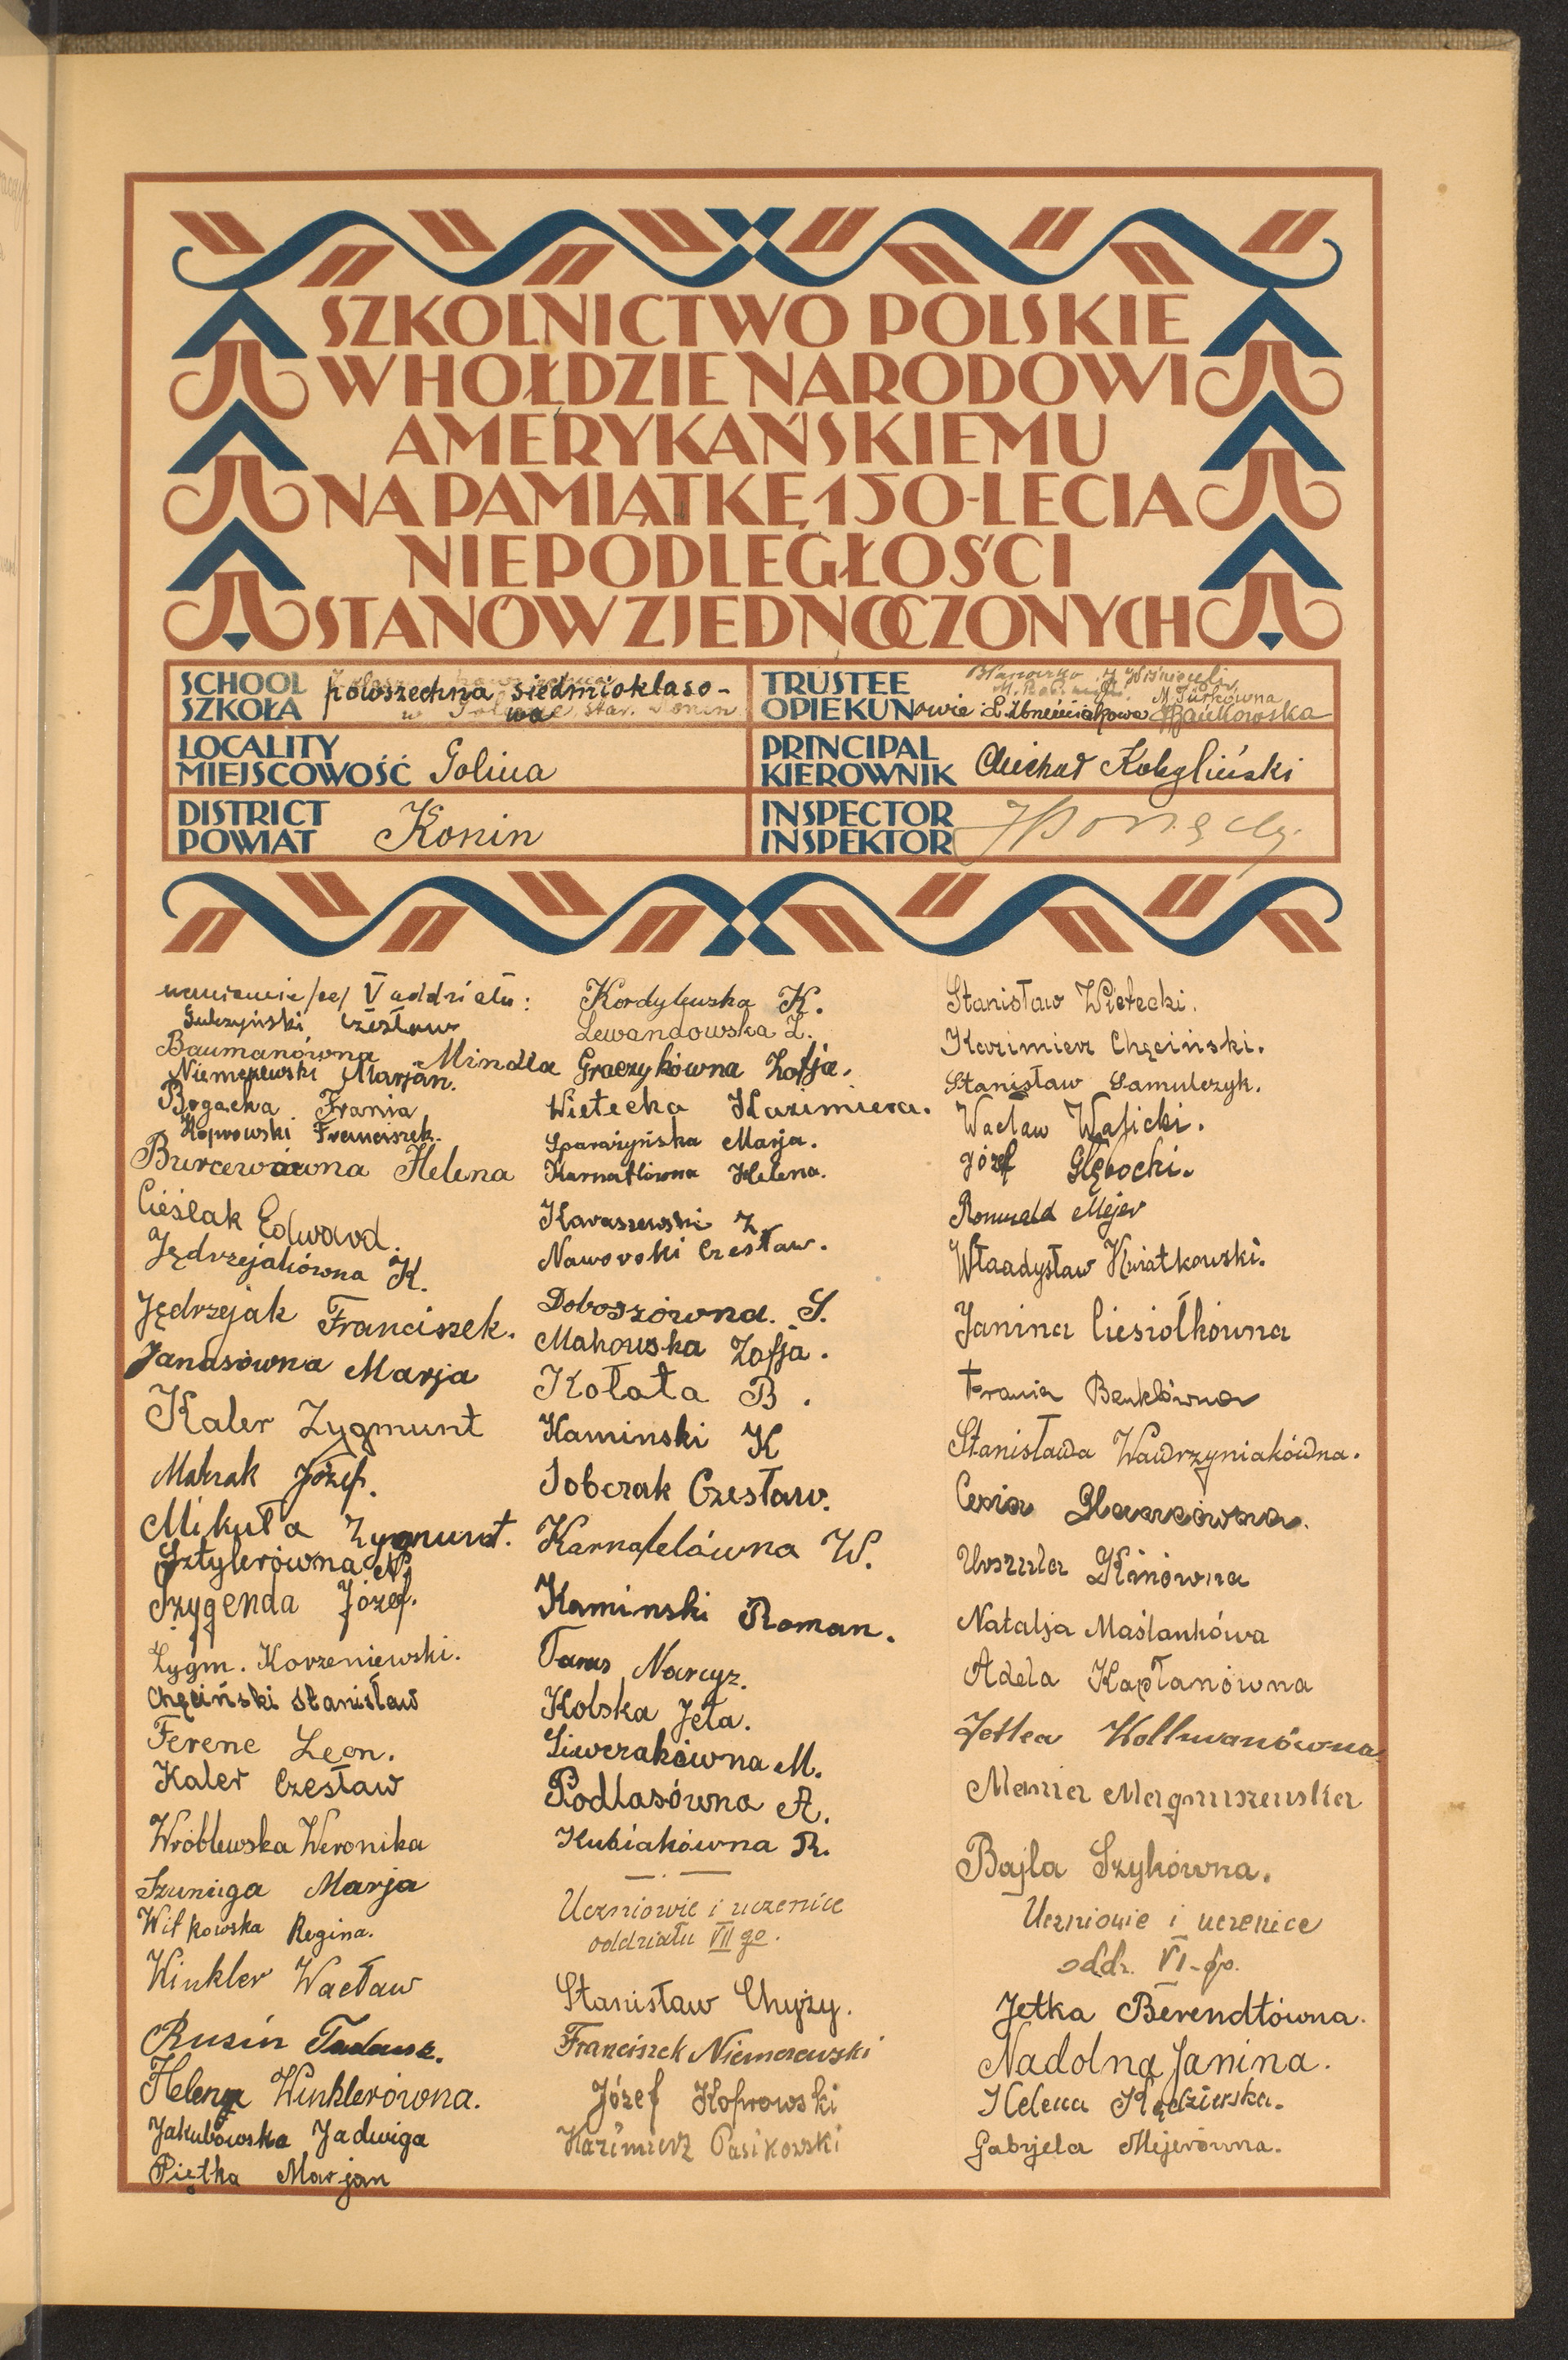 SZKOLNICTWO POLSKIE
W HOŁDZIE NARODOWI
AMERYKAŃSKIEMU
NA PAMIĄTKĘ 150-LECIA
NIEPODLEGŁOŚCI
STANÓW ZJEDNOCZONYCH
SCHOOL
SZKOŁA
powszechna siedmioklaso-
wa
TRUSTEE
OPIEKUNowie
LOCALITY
MIEJSCOWOŚĆ Golina
PRINCIPAL
KIEROWNIK Michał Kobyliński
DISTRICT
POWIAT Konin
INSPECTOR
INSPEKTOR
uczniowie /ce/ V oddziału:
Gulczyński Czesław
Baumanówna Mindla
Niemczewski Marjan.
Bogacka Frania
Koprowski Franciszek.
Burcewówna Helena
Cieślak Edward.
Jędrzejakówna K.
Jędrzejak Franciszek.
Janasówna Marja
Kaler Zygmunt
Matrak Józef.
Mikuła Zygmunt.
Sztylerówna N.
Szygenda Józef.
Zygm. Korzeniewski.
Chęciński Stanisław
Ferenc Leon.
Kaler Czesław
Wróblewska Weronika
Szuniga Marja
Witkowska Regina.
Winkler Wacław
Rusin Tadeusz.
Helena Winklerówna.
Jakubowska Jadwiga
Piętka Marjan
Kordylewska K.
Lewandowska Z.
Graczykówna Zofja.
Wietecka Kazimiera.
Sparażyńska Marja.
Karnatlówna Helena.
Karaszewski Z.
Naworski Czesław.
Doboszówna. S.
Makowska Zofja.
Kołata B.
Kaminski K
Sobczak Czesław.
Karnatelówna W.
Kaminski Roman.
Tams Narcyz.
Kolska Jeta.
Siwczakówna M.
Podlasówna A.
Kubiakówna R.
Uczniowie i uczenice
oddziału VII go.
Stanisław Chyży.
Franciszek Niemczewski
Józef Koprowski
Kazimierz Pasikowski
Stanisław Wietecki.
Kazimierz Chęciński.
Stanisław Samulczyk.
Wacław Wasicki.
Józef Głębocki.
Romuald Mejer
Właadysław Kwiatkowski.
Janina Ciesiółkówna
Frania Benklówna
Stanisława Wawrzyniakówna.
Cesia
Urszula Kinówna
Natalja Maślankówa
Adela Kapłanówna
Jetka Kollmanówna
Mania Magnuszewska
Bajla Szykówna.
Uczniowie i uczenice
oddz. VI-go.
Jetka Berendtówna.
Nadolna Janina.
Helena Kędzierska.
Gabrjela Mejerówna.